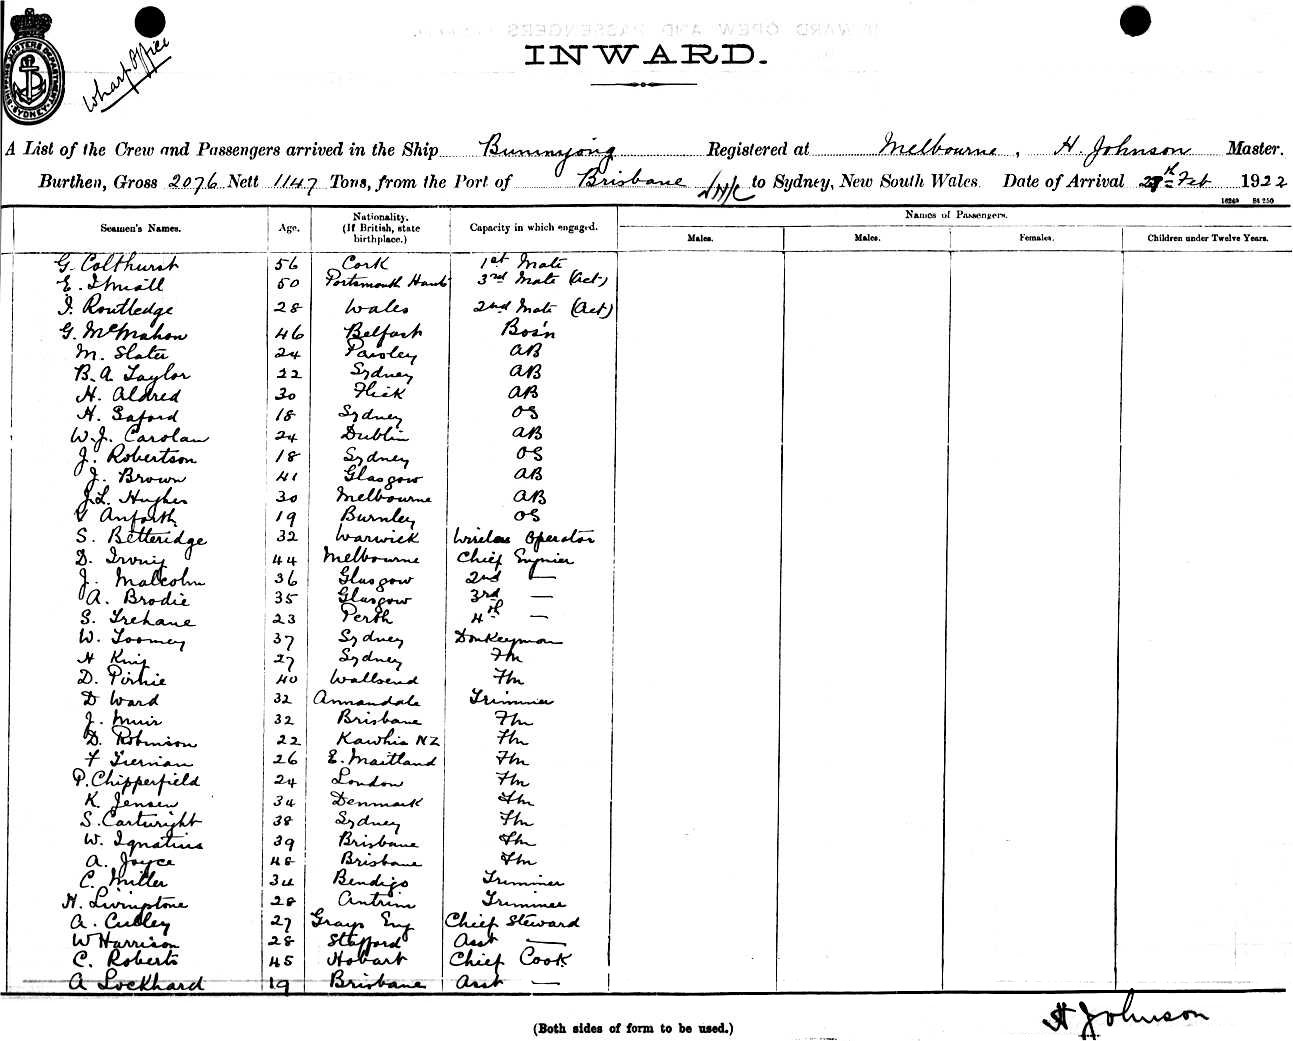 Wharf Office
SHIPPING MASTERS DEPARTMENT SYDNEY
INWARD.
A List of the Crew and Passengers arrived in the Ship Bunnyong Registered at Melbourne, H. Johnson Master.
Burthen, Gross 2076 Nett 1147 Tons, from the Port of Brisbane to Sydney, New South Wales. Date of Arrival Feb 1922
Seamen's Names. Age. Nationality. (If British, state birthplace.) Capacity in which engaged. Names of Passengers.
Males. Males. Females. Children under Twelve Years.
G. Colthurst 56 Cork 1st Mate
E. 50 Portsmouth Hants 3rd Mate (Act)
J. Routledge 28 Wales 2nd Mate (Act)
G. McMahon 46 Belfast Bos'n
M. Slater 24 Paisley AB
B. A. Taylor 22 Sydney AB
H. Aldred 30 AB
H. Saford 18 Sydney OS
W. J. Carolan 24 Dublin AB
J. Robertson 18 Sydney OS
J. Brown 41 Glasgow AB
J. L. Hughes 30 Melbourne AB
Anforth 19 Burnley OS
S. Betteridge 32 Warwick Wireless Operator
D. Irving 44 Melbourne Chief Engineer
J. Malcolm 36 Glasgow 2nd —
A. Brodie 35 Glasgow 3rd —
S. Trehane 23 Perth 4th —
W. Toomey 37 Sydney Donkeyman
H King 27 Sydney Fm
D. Pirhie 40 Wallsend Fm
D Ward 32 Annandale Trimmer
J. Muir 32 Brisbane Fm
D. Robinson 22 Kawhia NZ Fm
F Tiernan 26 E. Maitland Fm
P. Chipperfield 24 London Fm
K. Jensen 34 Denmark Fm
S. Cartwright 38 Sydney Fm
W. Ignatius 39 Brisbane Fm
A. Joyce 48 Brisbane Fm
C. Miller 34 Bendigo Trimmer
H. Livingstone 28 Antrim Trimmer
A. Culley 27 Grays Eng Chief Steward
W Harrison 28 Stafford Asst —
C. Roberts 45 Hobart Chief Cook
A Lockhard 19 Brisbane Asst —
H Johnson
(Both sides of form to be used.)